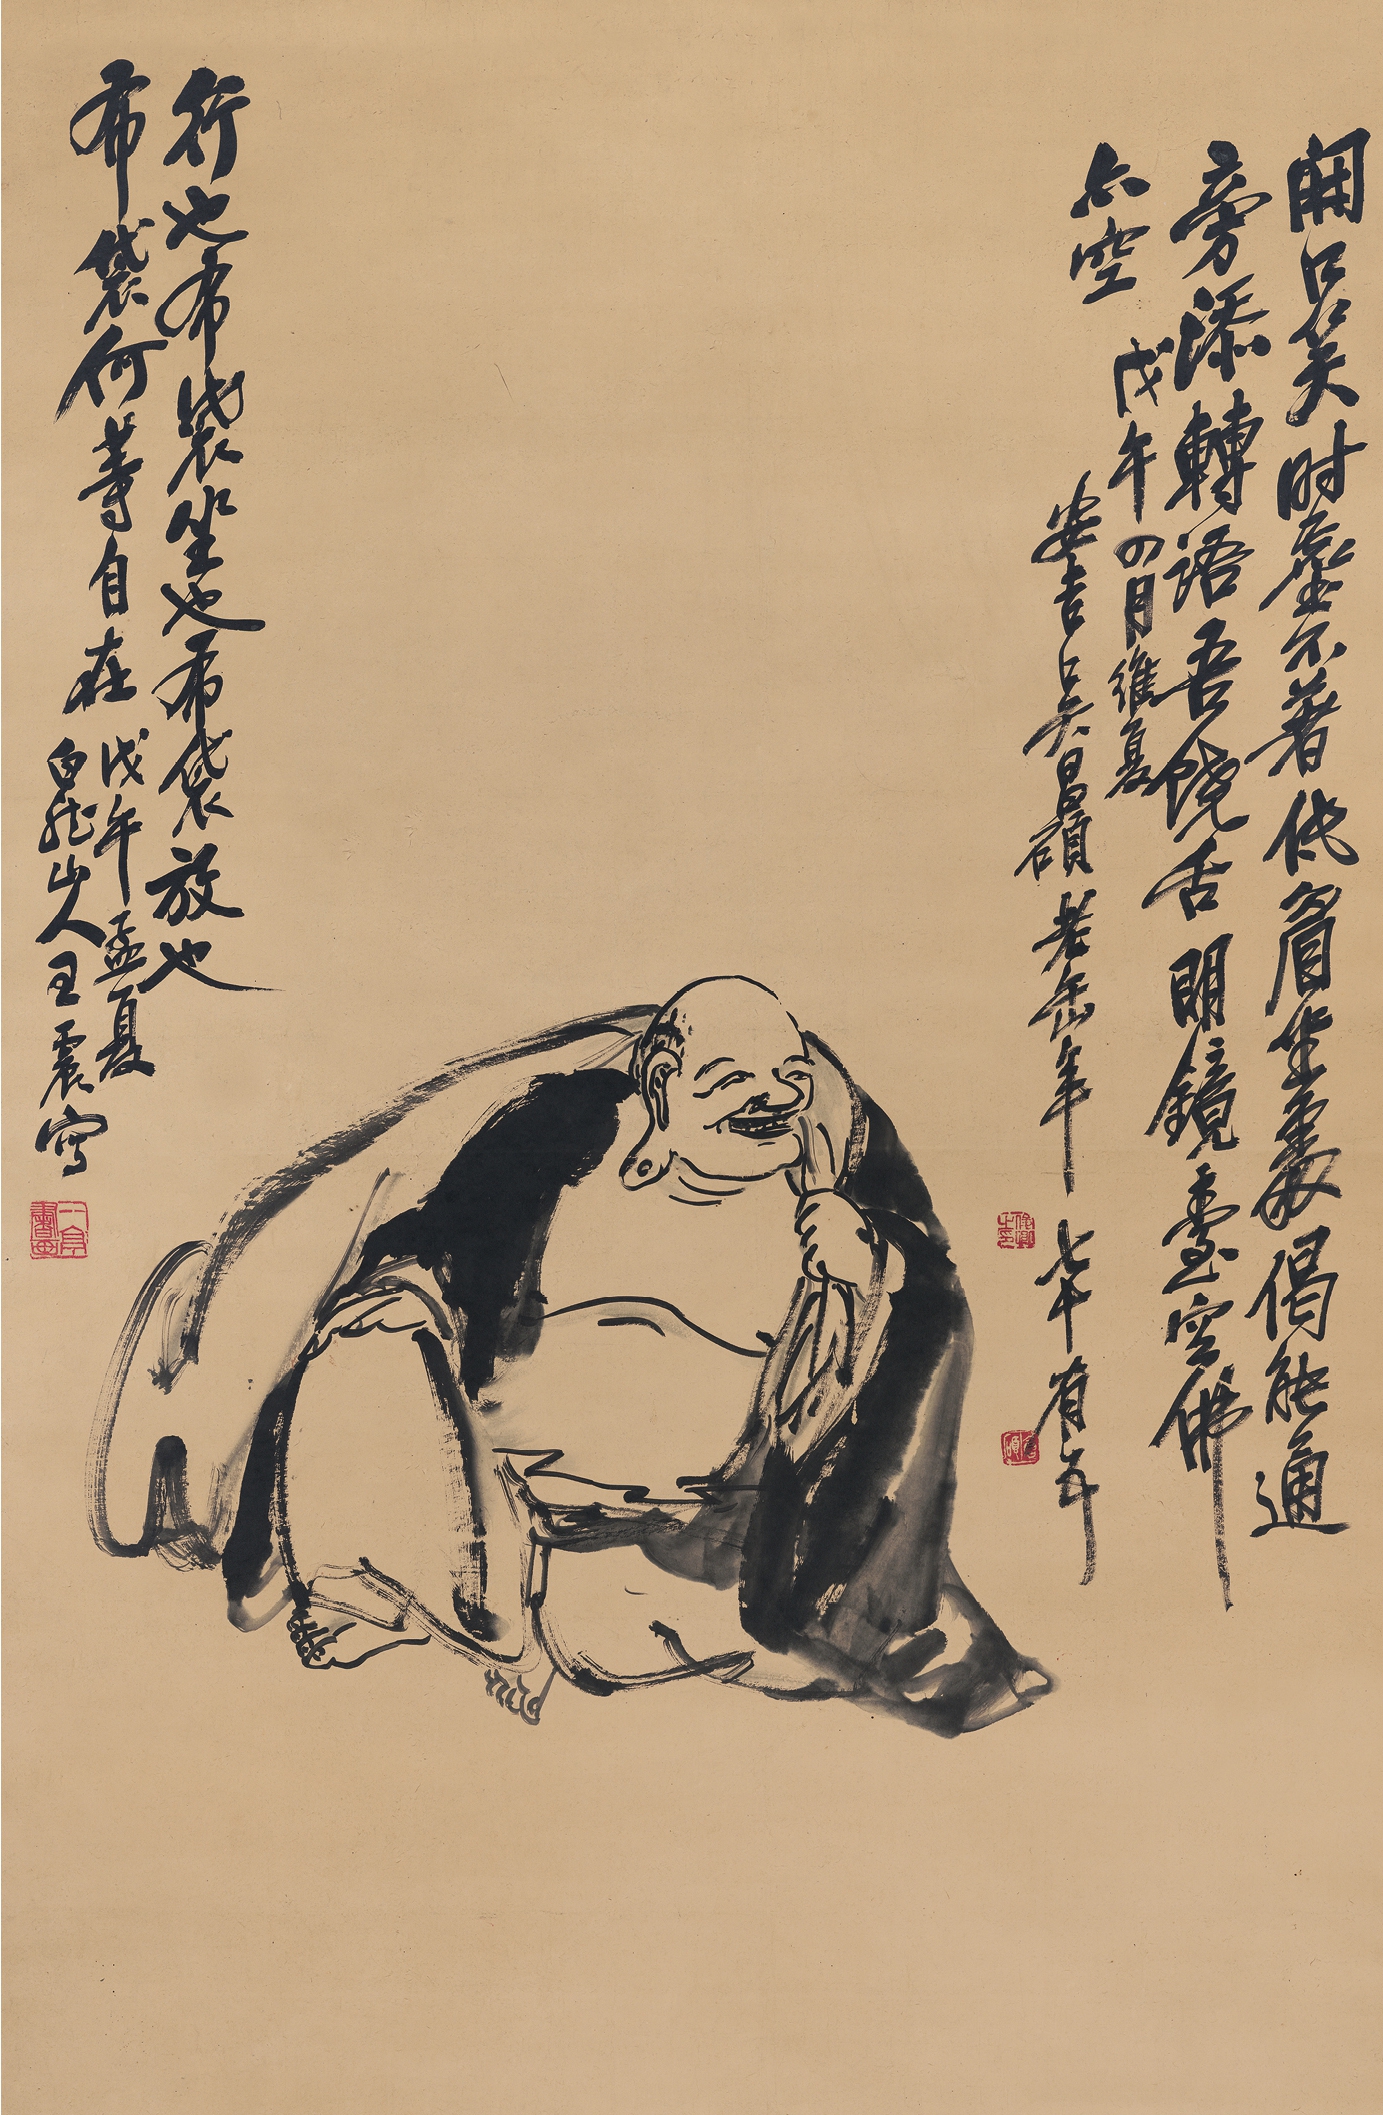 開口笑時塵不著低眉坐處偈能通
旁添轉語吾饒舌明鏡臺空佛
亦空 戊午四月維夏
安吉吳昌碩老缶年七十有五
俊卿之印
昌碩
行也布袋坐也布袋放也
布袋何等自在 戊午孟夏
白龍山人王震寫
一亭書畫